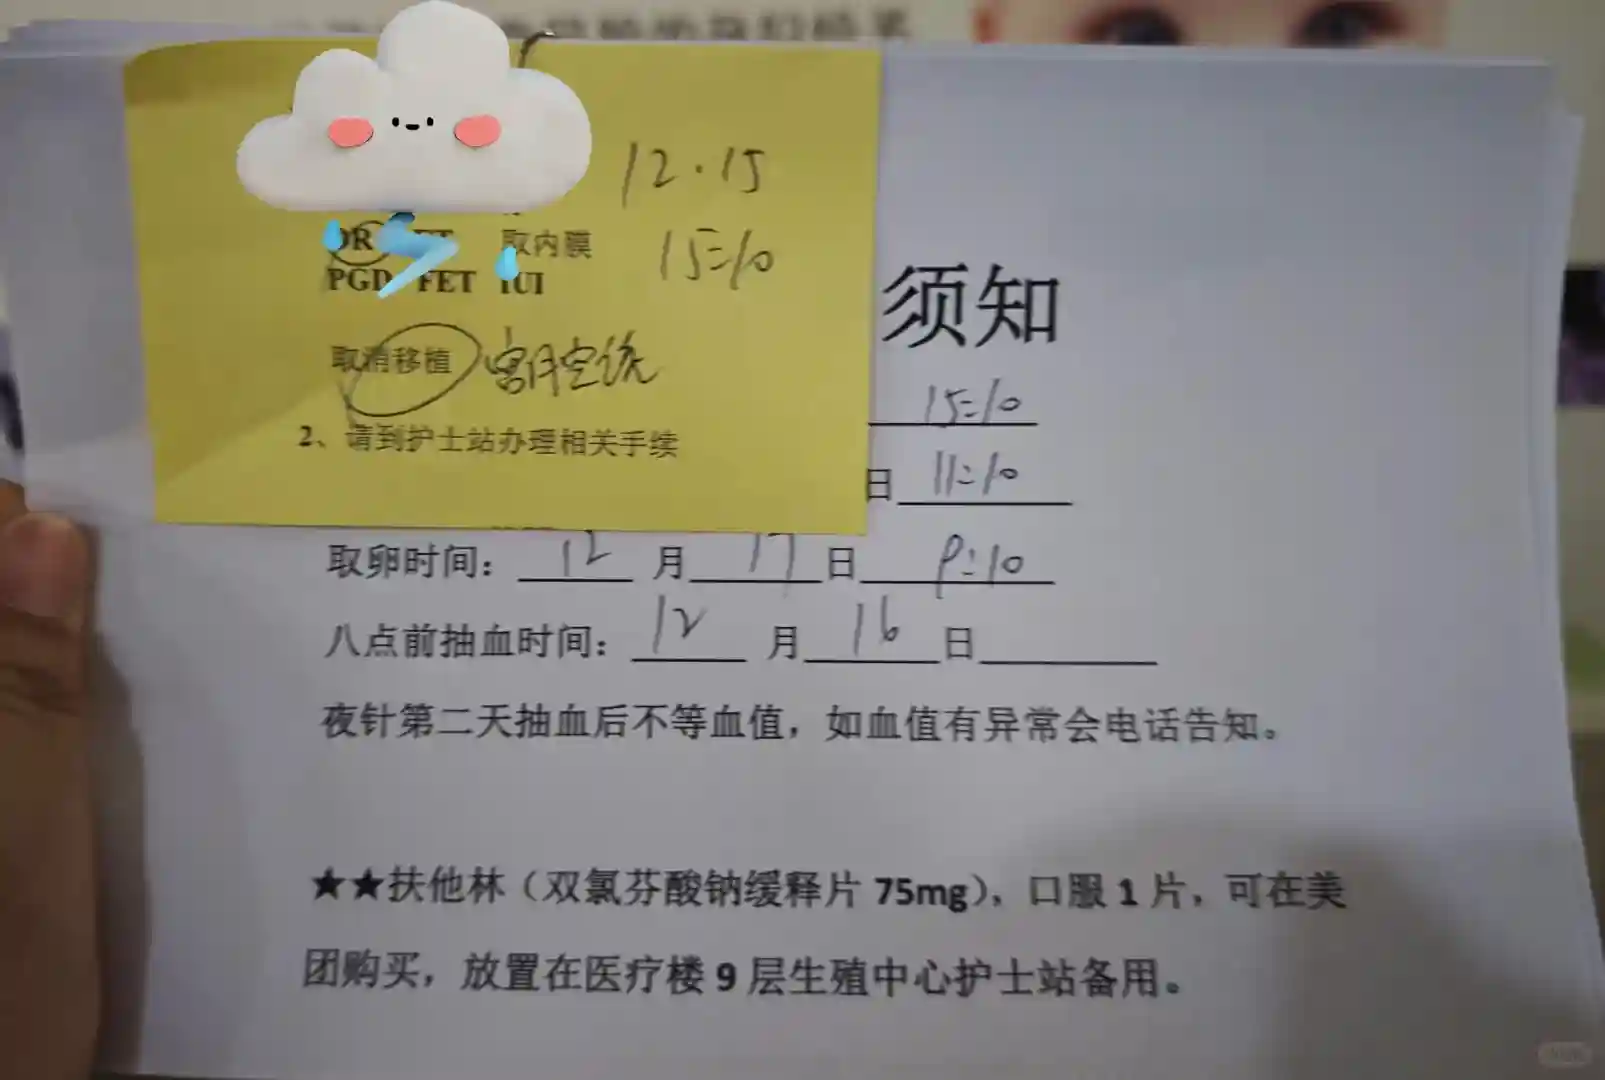 12.15
OR
取内膜
15:10
PGD FET IUI
取消移植 宫腔镜
2、请到护士站办理相关手续
须知
15:10
日 11:10
取卵时间: 12 月 17 日 9:10
八点前抽血时间: 12 月 16 日
夜针第二天抽血后不等血值,如血值有异常会电话告知。
★★扶他林(双氯芬酸钠缓释片 75mg),口服 1 片,可在美
团购买,放置在医疗楼 9 层生殖中心护士站备用。